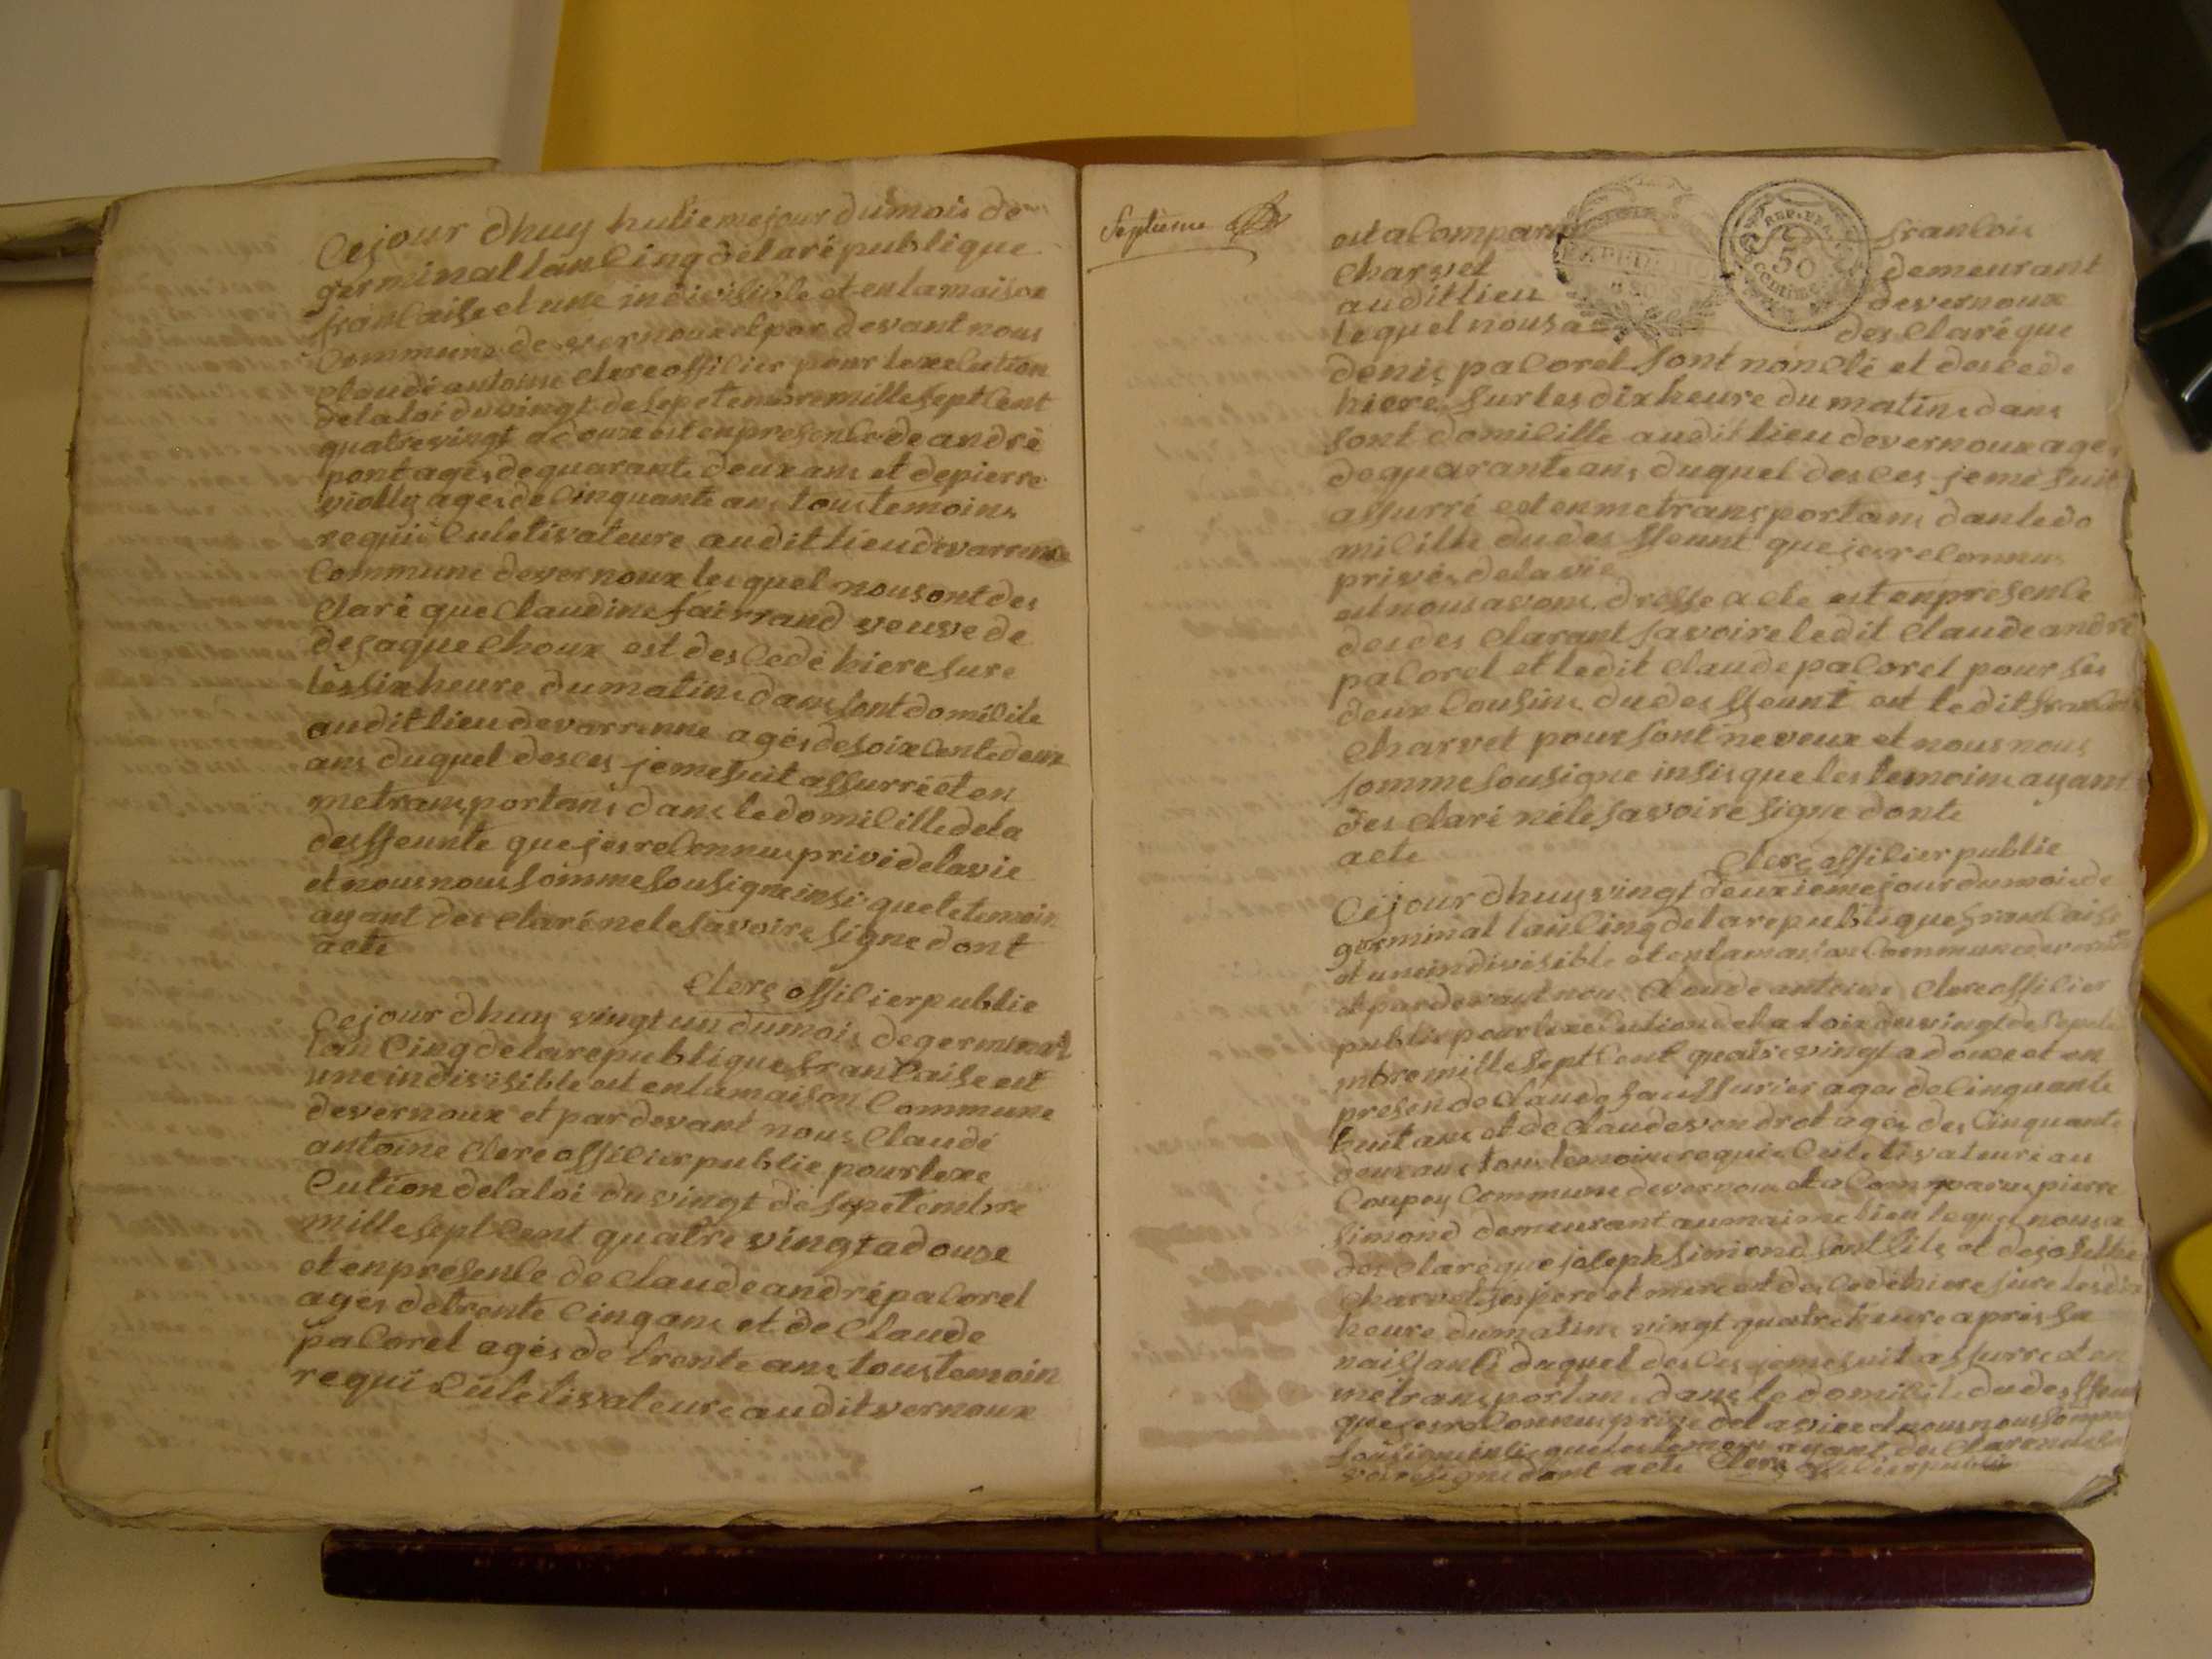 Cejour dhuy huitiemejour dumois de
germinal lan Cinq delarépublique
franlaise et une indivisible et enlamaison
Commune devernoux et par devant nous
Claude antoine Clerc offilier pour lexelution
delaloi du vingt desepetembre mille septCent
quatre vingt adouze est enpresenle de andré
pont agés dequarante deux ans et depierre
violly agés de Cinquante ans tous temoins
requi Culetivateure audit lieu devarrenne
Commune devernoux les quel nous ont des
Claré que Claudine fairrand veuve de
dejaque Choux est des Cedé hiere sure
les six heure dumatine dans sont domicile
audit lieu devarrenne agés desoixCente deux
ans duquel desces jeme suit assurré et en
metransportans dans le domiCille dela
desffeunte que jesreConnus privé delavie
et nous nous somme sousigne insi que le temoin
ayant des Claré nele savoire signe dont
acte
Clerc offilier publie
Cejour dhuy vingt un dumois de germinal
lan Cinq delarepublique franCaise est
une indivisible est enlamaison Commune
devernoux et par devant nous Claude
antoine Clerc offilier publie pour lexe
Cution delaloi du vingt de sepetembre
mille sept Cent quatre vingt adouze
et enpresenle de Claude andré paCorel
agés detrente Cinq ans et de Claude
paCorel agés de trente ans tous temoin
requi Culetivateure audit vernoux
Septième
est aCompars franCois
Charvet demeurant
audit lieu devernoux
lequel nous a des Claré que
REP. FRA
50
Centimes
denis paCorel sont nonCle et descede
hiere sur les dix heure du matine dans
sont domiCille audit lieu devernoux agés
de quarante ans duquel desces jeme suit
assurré est enmetransportans dans le do
miCille du des ffeunt que jesreConnus
privés delavie
est nous avons dresse acte est enpresenle
des des Clarant savoire ledit Claude andré
paCorel et ledit Claude paCorel pour ses
deux Cousins du des ffeunt est ledit franCois
Charvet pour sont neveux et nous nous
somme sousigne insis que les temoins ayant
des Claré néle savoire signe donte
acte
Clerc offilier publie
Cejour dhuy vingt deuxiemejour dumois de
germinal lan Cinq delarepublique franCaise
et une indivisible et enlamaison Commune devernoux
et par devant nous Claude antoine Clerc offilier
publie pour lexeCution de la loix du vingt de sepete
mbre mille sept Cent quatre vingt a douze et en
presen de Claude agés de Cinquante
huit ans et de Claude vendret agés des Cinquante
deux ans tous temoins requis Culetivateure au
Coupoy Commune devernoux et a Comparus pierre
simond demeurant aumaime lieu lequel nous a
des Claré que joseph simond sont fils et dejosethe
Charvet ses pere et mere est des Cedé hiere sure les dix
heure dumatine vingt quatre heure apres sa
naissanCe duquel desces jeme suit assurré et en
metransportans dans le domiCile du des ffeunt
que jesreConnus prive delavie et nous nous somme
sousigne insis que les temoins ayant des Claré nele sa
voire signe dont acte Clerc offilier publie